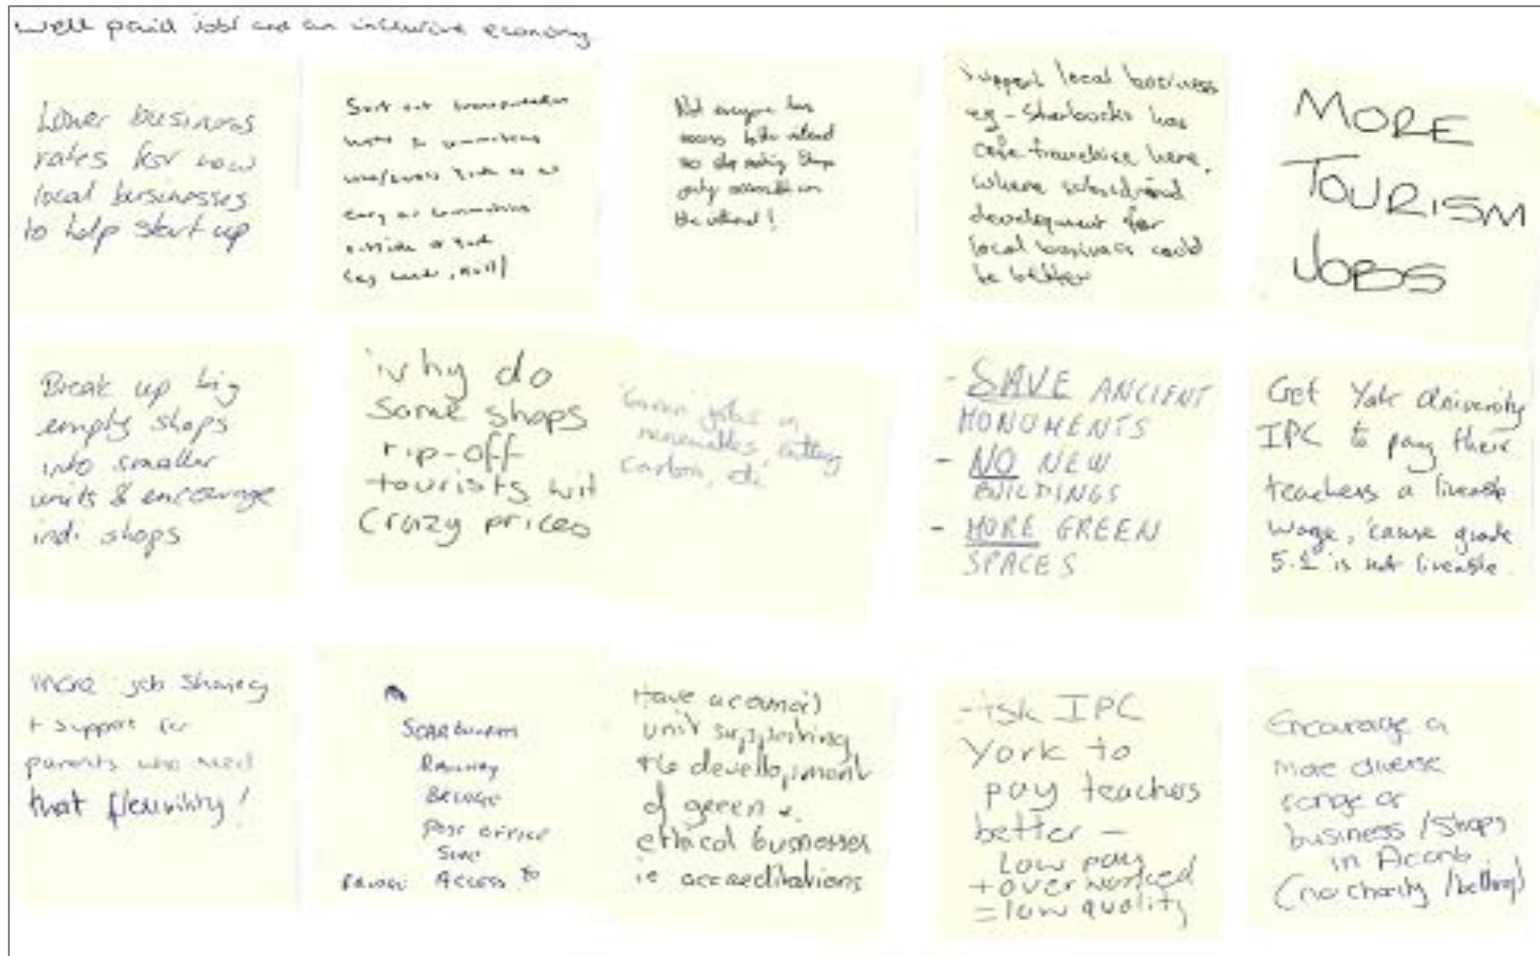 well paid jobs and an inclusive economy
Lower business
rates for new
local businesses
to help start up
Sort out transportation
easy as
outside of York
Not everyone has
access to the internet
so stop making things
only accessible on
the internet!
Support local business
eg - Starbucks has
cafe franchise here,
where subsidised
development for
local business could
be better
MORE
TOURISM
JOBS
Break up big
empty shops
into smaller
units & encourage
indi shops
Why do
some shops
rip-off
tourists wit
crazy prices
Green jobs in
renewables, cutting
carbon, etc
- SAVE ANCIENT
MONUMENTS
- NO NEW
BUILDINGS
- MORE GREEN
SPACES
Get York University
IPC to pay their
teachers a liveable
wage, 'cause grade
5.1 is not liveable.
More job sharing
+ support for
parents who need
that flexibility!
Scarborough
Railway
Bridge
Post office
Access to
Have a council
unit supporting
the development
of green &
ethical businesses
ie accreditations
- Ask IPC
York to
pay teachers
better -
Low pay
+ overworked
= low quality
Encourage a
more diverse
range of
business / shops
in Acomb
(no charity / betting)